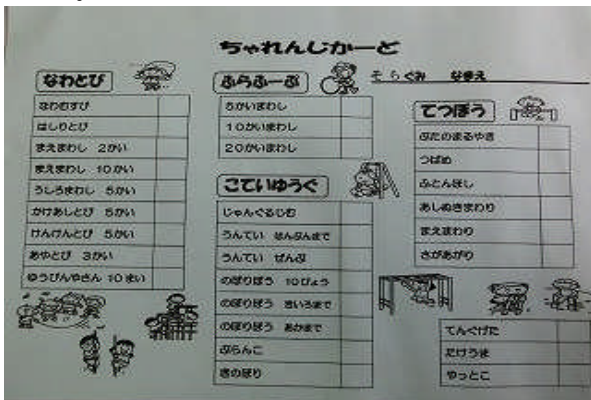 ちゃれんじかーど
そらぐみ なまえ
なわとび
なわむすび
はしりとび
まえまわし 2かい
まえまわし 10かい
うしろまわし 5かい
かけあしとび 5かい
けんけんとび 5かい
あやとび 3かい
ゆうびんやさん 10まい
ふらふーぷ
5かいまわし
10かいまわし
20かいまわし
こていゆうぐ
じゃんぐるじむ
うんてい はんぶんまで
うんてい ぜんぶ
のぼりぼう 10びょう
のぼりぼう きいろまで
のぼりぼう あかまで
ぶらんこ
きのぼり
てつぼう
ぶたのまるやき
つばめ
ふとんほし
あしぬきまわり
まえまわり
さかあがり
てんぐげた
たけうま
やっとこ